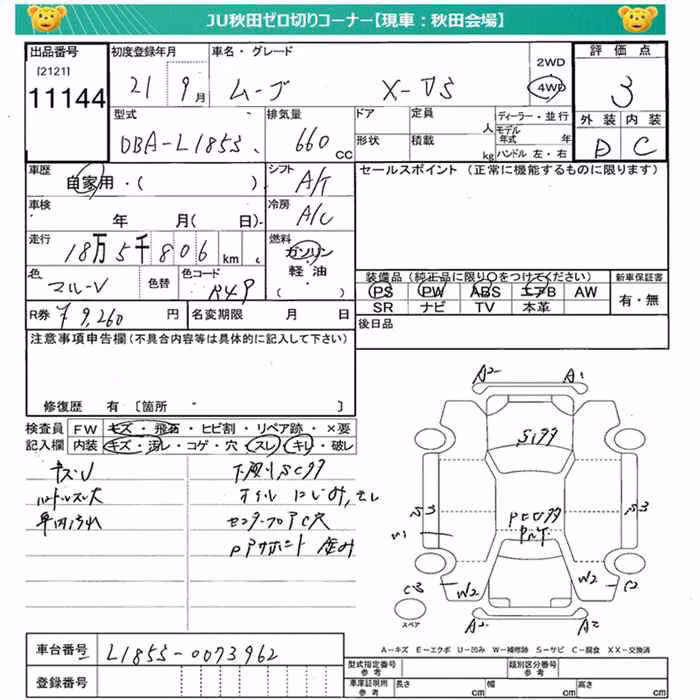 JU秋田ゼロ切りコーナー【現車：秋田会場】
出品番号 初度登録年月 車名・グレード 2WD 評価点
[2121] 21 9月 ムーヴ 4WD 3
11144 型式 排気量 ドア 定員 人 ディーラー・並行 外装 内装
DBA-L185S 660 CC 形状 積載 kg モデル年式 年 ハンドル 左・右 D C
車歴 自家用・( ) シフト A/T セールスポイント (正常に機能するものに限ります)
車検 年 月( 日) 冷房 A/C
走行 18万5千806 km 燃料 ガソリン
軽油
( )
色 色替 色コード R49 装備品 (純正品に限り○をつけてください) 新車保証書
PS PW ABS エアB AW 有・無
SR ナビ TV 本革
R券 ¥9,260 円 名変期限 月 日 後日品
注意事項申告欄(不具合内容等は具体的に記入して下さい)
修復歴 有 〔箇所 〕
検査員 FW キズ・飛石・ヒビ割・リペア跡・×要
記入欄 内装 キズ・汚レ・コゲ・穴・スレ・キレ・破レ
A2 A1
ハンドルスレ大
車内汚れ
オイルにじみ
S3 S3
W2 W2 C2
C3
スペア
A2 A2
A-キズ E-エクボ U-凹み W-補修跡 S-サビ C-腐食 XX-交換済
車台番号 L185S-0073962
登録番号
型式指定番号 参考 類別区分番号 参考
車庫証明用 参考 長さ cm 幅 cm 高さ cm